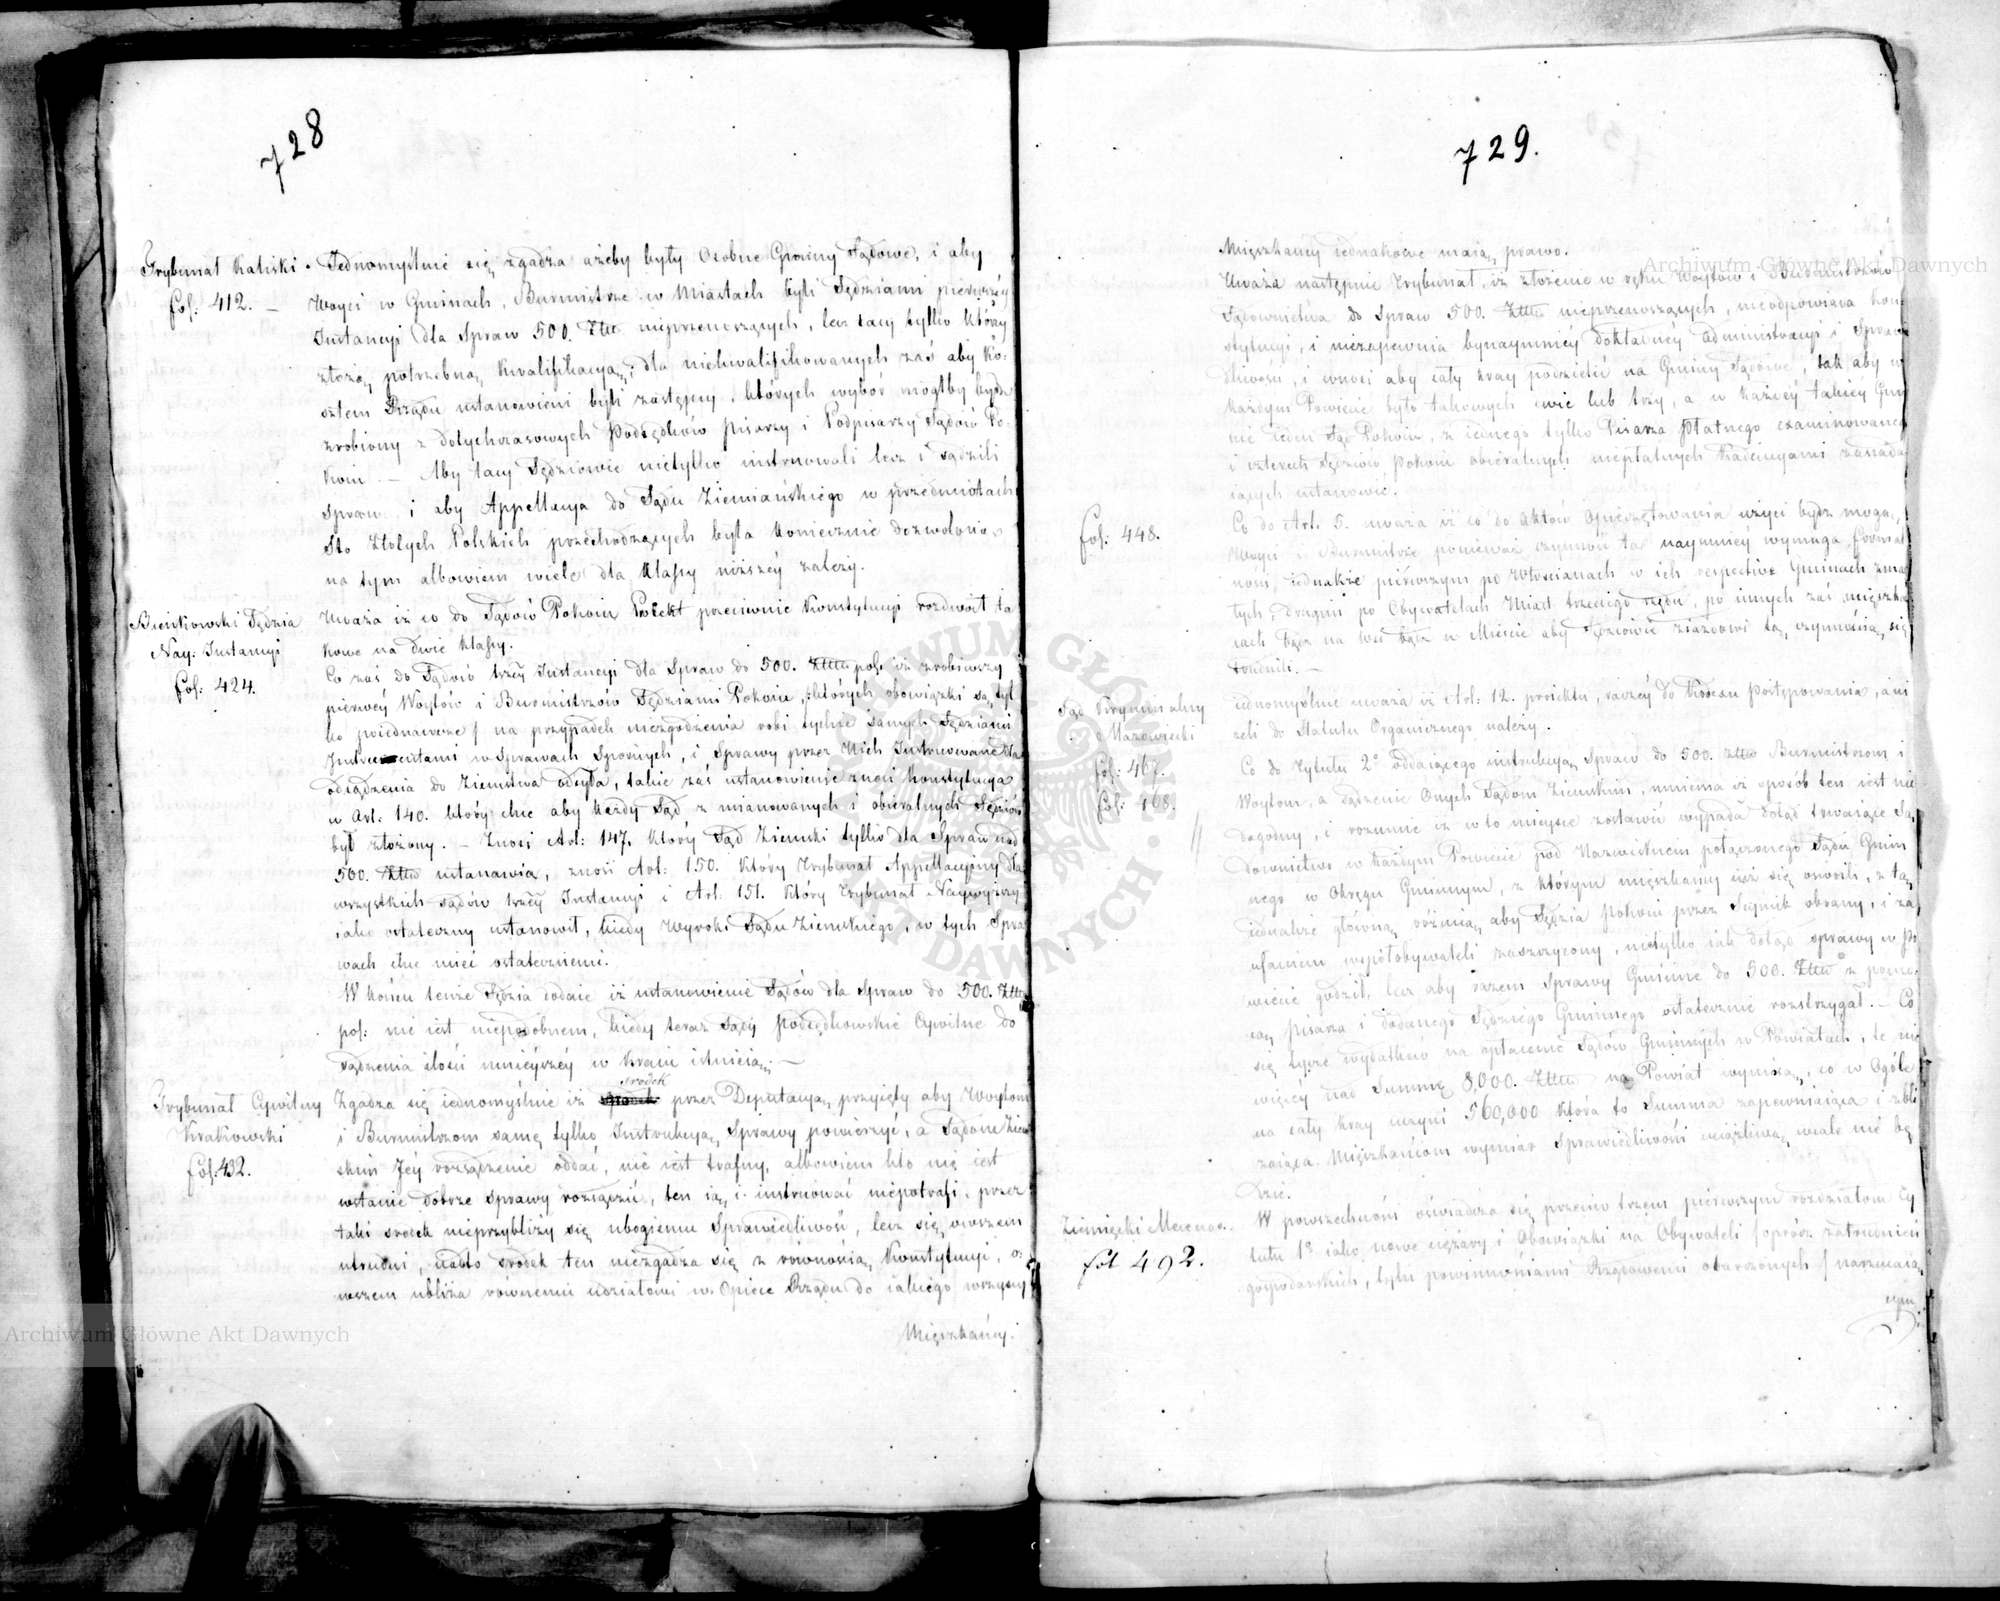 728
Trybunał Kaliski.
fol: 412. —
Jednomyślnie się zgadza ażeby były Osobne Gminy Sądowe, i aby
Woyci w Gminach, Burmistrze w Miastach byli Sędziami pierwszéy
Instancyi dla Spraw 500. Złtn nieprzenoszących, lecz tacy tylko którzy
złożą potrzebną Kwalifikacyą; dla niekwalifikowanych zaś aby Ko-
sztem Rządu ustanowieni byli zastępcy, których wybór mógłby bydź
zrobiony z dotychczasowych Podsędków Pisarzy i Podpisarzy Sądów Po-
koiu. — Aby tacy Sędziowie nietylko instruowali lecz i sądzili
sprawy i aby Appellacya do Sądu Ziemiańskiego w przedmiotach
Sto Złotych Polskich przechodzących była koniecznie dozwoloną,
na tym albowiem wiele dla Klassy niższéy zależy.
Bieńkowski Sędzia
Nay: Instancyi
fol: 424.
Uważa iż co do Sądów Pokoiu Proiekt przeciwnie Konstytucyi rozdwoił ta
kowe na dwie Klassy.
Co zaś do Sądów 1széy Instancyi dla Spraw do 500. Złtn pol: iż zrobiwszy
pierwéy Woytów i Burmistrzów Sędziami Pokoiu, /:których obowiązki są tyl
ko poiednawcze/ na przypadek niezgodzenia robi tychże samych Sędziami
Instruentami w Sprawach Spornych, i Sprawy przez Nich Instruowane dla
odsądzenia do Ziemstwa odsyła, takie zaś ustanowienie znosi Konstytucya
w Art: 140. który chce aby każdy Sąd z mianowanych i obieralnych Sędziów
był złożony. — Znosi Art: 147. który Sąd Ziemski tylko dla Spraw nad
500. Złtn ustanawia, znosi Art: 150. Który Trybunał Appellacyiny dla
wszystkich sądów 1széy Instancyi i Art: 151. Który Trybunał Naywyższy
iako ostateczny ustanowił, kiedy Wyroki Sądu Ziemskiego, w tych Spra
wach chce mieć ostatecznemi.
W końcu tenże Sędzia dodaie iż ustanowienie Sądów dla Spraw do 500. Złtn
pol: nie iest niepodobnem, kiedy teraz Sądy Podsędkowskie Cywilne do
sądzenia ilości mnieyszéy w Kraiu istnieią. —
Trybunał Cywilny
Krakowski
fol: 432.
srodek
Zgadza się iednomyślnie iż przez Deputacyą przyięty aby Woytom
i Burmistrzom samę tylko Instrukcyą Sprawy powierzyć, a Sądom Ziem
skim Jéy rozsądzenie oddać, nie iest trafny, albowiem kto nie iest
wstanie dobrze sprawy rozsądzić, ten ią i instruować niepotrafi, przez
taki srodek nieprzybliży się ubogiemu Sprawiedliwość, lecz się owszem
utrudni, nadto srodek ten niezgadza się z równością Konstytucyi, o-
wszem ubliża równemu udziałowi w Opiece Rządu do iakiego wszyscy
Mięszkańcy.
729.
Mięszkańcy iednakowe maią prawo.
Uważa następnie Trybunał, iż złożenie w ręku Woytów i Burmistrzów
Sądownictwa do Spraw 500. Złtn nieprzenoszących, nieodpowiada Kon-
stytucyi, i niezapewnia bynaymniéy dokładnéy administracyi Sprawie
dliwości, i wnosi aby cały kray podzielić na Gminy Sądowe, tak aby w
każdym Powiecie było takowych dwie lub trzy, a w każdéy takiéy Gmi
nie ieden Sąd Pokoiu, z iednego tylko Pisarza Płatnego examinowanego
i czterech Sędziów Pokoiu obieralnych niepłatnych Kadencyami zasiada
iących ustanowić.
fol: 448.
Co do Art. 5. uważa iż co do Aktów Opieczętowania użyci bydź mogą,
Woyci i Burmistrze ponieważ czynność ta naymniéy wymaga formal
ności, iednakże pierwszym po Włościanach w ich respective Gminach zmar
łych, drugim po Obywatelach Miast trzeciego rzędu, po innych zaś mięszka
cach bądź na wsi bądź w Mieście aby Sędziowie ziazdowi tą czynnością się
trudnili. —
Sąd Kryminalny
Mazowiecki
fol: 467.
fol: 468.
iednomyślnie uważa iż Art: 12. proiektu, raczéy do Kodexu Postępowania, ani
żeli do Statutu Organicznego należy.
Co do Tytułu 2º oddaiącego instrukcyą Spraw do 500. Złtn Burmistrzom i
Woytom, a sądzenie Onych Sądom Ziemskim, mniema iż sposób ten iest nie
dogodny, i rozumie iż w to mieysce zostawić wypada dotąd trwaiące Są
downictwo w każdym Powiecie pod Nazwiskiem połączonego Sądu Gmin
nego w Okręgu Gminnym, z którym mięszkańcy iuż się oswoili, z tą
iednakże główną różnicą, aby Sędzia Pokoiu przez Seymik obrany, i za
ufaniem współobywateli zaszczycony, nietylko iak dotąd sprawy w Po
wiecie godził, lecz aby razem Sprawy Gminne do 500. Złtn z pomo-
cą Pisarza i dodanego Sędziego Gminnego ostatecznie rozstrzygał. — Co
się tycze wydatków na opłacenie Sądów Gminnych w Powiatach, te nie
więcéy nad Summę 8,000. Złtn na Powiat wyniosą, co w Ogóle
na cały kray uczyni 560,000 która to Summa zapewniaiąca i zbli
żaiąca Mięszkańcom wymiar Sprawiedliwości uciążliwą wcale nie bę
dzie.
Ziemięcki Mecenas.
fol 492.
W powszechności oświadcza się przeciw trzem pierwszym rozdziałom Ty
tułu 1º iako nowe ciężary i Obowiązki na Obywateli /oprócz zatrudnień
gospodarskich, tylu powinnościami Rządowemi obarczonych/ narzucaią
cym